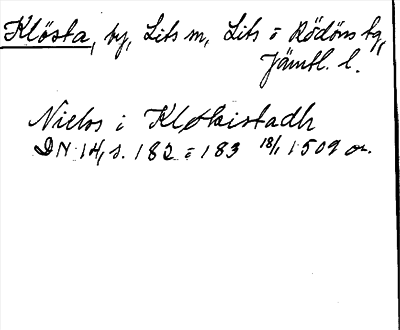 Klösta, by, Lits sn, Lits o Rödöns tg,
Jämtl. l.
Nielss i Kløstadh
DN 14, s. 182 - 183 18/1 1509 or.